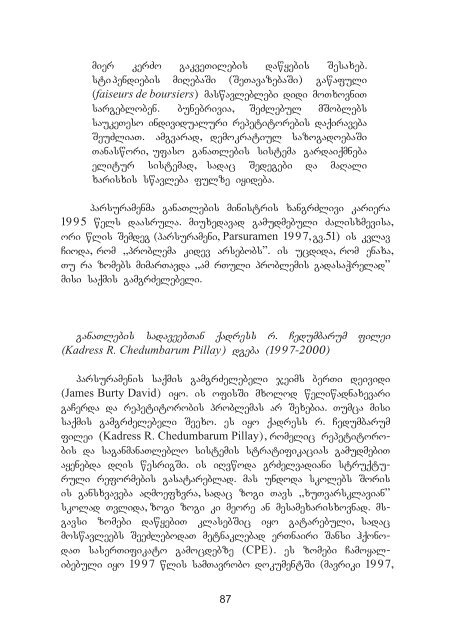 მიერ კერძო გაკვეთილების დაწყების შესახებ.
სტიპენდიების მიღებაში (შეთავაზებაში) გაწაფული
(faiseurs de boursiers) მასწავლებლები დიდი მოთხოვნით
სარგებლობენ. ბუნებრივია, შეძლებულ მშობლებს
საუკეთესო ინდივიდუალური რეპეტიტორების დაქირავება
შეუძლიათ. ამგვარად, დემოკრატიულ საზოგადოებაში
თანასწორი, უფასო განათლების სისტემა გარდაიქმნება
ელიტურ სისტემად, სადაც შედეგები და მაღალი
ხარისხის სწავლება ფულზე იყიდება.
პარსურამენმა განათლების მინისტრის ხანგრძლივი კარიერა
1995 წელს დაასრულა. მიუხედავად გამუდმებული ძალისხმევისა,
ორი წლის შემდეგ (პარსურამენი, Parsuramen 1997,გვ.51) ის კვლავ
ჩიოდა, რომ ,,პრობლემა კიდევ არსებობს”. ის უცდიდა, რომ ენახა,
თუ რა ზომებს მიმართავდა ,,ამ რთული პრობლემის გადასაჭრელად”
მისი საქმის გამგრძელებელი.
განათლების სადავეებთან ქადრესს რ. ჩედუმბარუმ ფილეი
(Kadress R. Chedumbarum Pillay) დგება (1997-2000)
პარსურამენის საქმის გამგრძელებელი ჯეიმს ბერთი დეივიდი
(James Burty David) იყო. ის ოფისში მხოლოდ წელიწადნახევარი
გაჩერდა და რეპეტიტორობის პრობლემას არ შეხებია. თუმცა მისი
საქმის გამგრძელებელი შეეხო. ეს იყო ქადრესს რ. ჩედუმბარუმ
ფილეი (Kadress R. Chedumbarum Pillay), რომელიც რეპეტიტორო-
ბის და საგანმანათლებლო სისტემის სტრატიფიკაციას გამუდმებით
აყენებდა დღის წესრიგში. ის იღვწოდა გრძელვადიანი სტრუქტუ-
რული რეფორმების გასატარებლად. მას უნდოდა სკოლებს შორის
ის განსხვავება აღმოეფხვრა, სადაც ზოგი თავს ,,ხუთვარსკლავიან”
სკოლად თვლიდა, ზოგი ზოგი კი მეორე ან მესამეხარისხოვნად. მს-
გავსი ზომები დაწყებით კლასებშიც იყო გატარებული, სადაც
მოსწავლეებს შეეძლებოდათ მეტნაკლებად ერთნაირი შანსი ჰქონო-
დათ სასერთიფიკატო გამოცდებზე (CPE). ეს ზომები ჩამოყალ-
იბებული იყო 1997 წლის სამთავრობო დოკუმენტში (მავრიკი 1997,
87